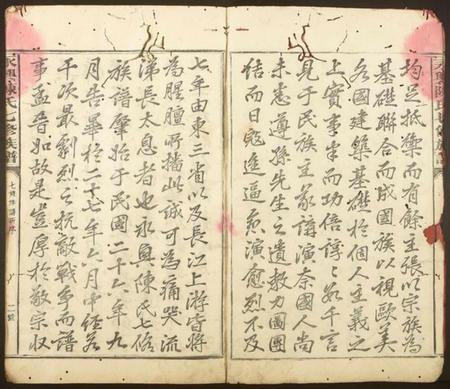 永興陳氏七修族譜
均足抵禦而有餘主張以宗族為
基礎聯合而成國族以視歐美
各國建築基礎於個人主義之
上實事半而功倍諄諄數千言
見于民族主義講演奈國人尚
未悉遵孫先生之遺教力圖團
結而日寇進逼愈演愈烈不及
七年由東三省以及長江上游皆將
為腥膻所播此誠可為痛哭流
涕長太息者也永興陳氏七修
族譜肇始于民國二十六年九
月告畢於二十七年六月中經若
干次最劇烈之抗敵戰爭而譜
事孟晉如故是豈厚於敬宗收
永興陳氏七修族譜